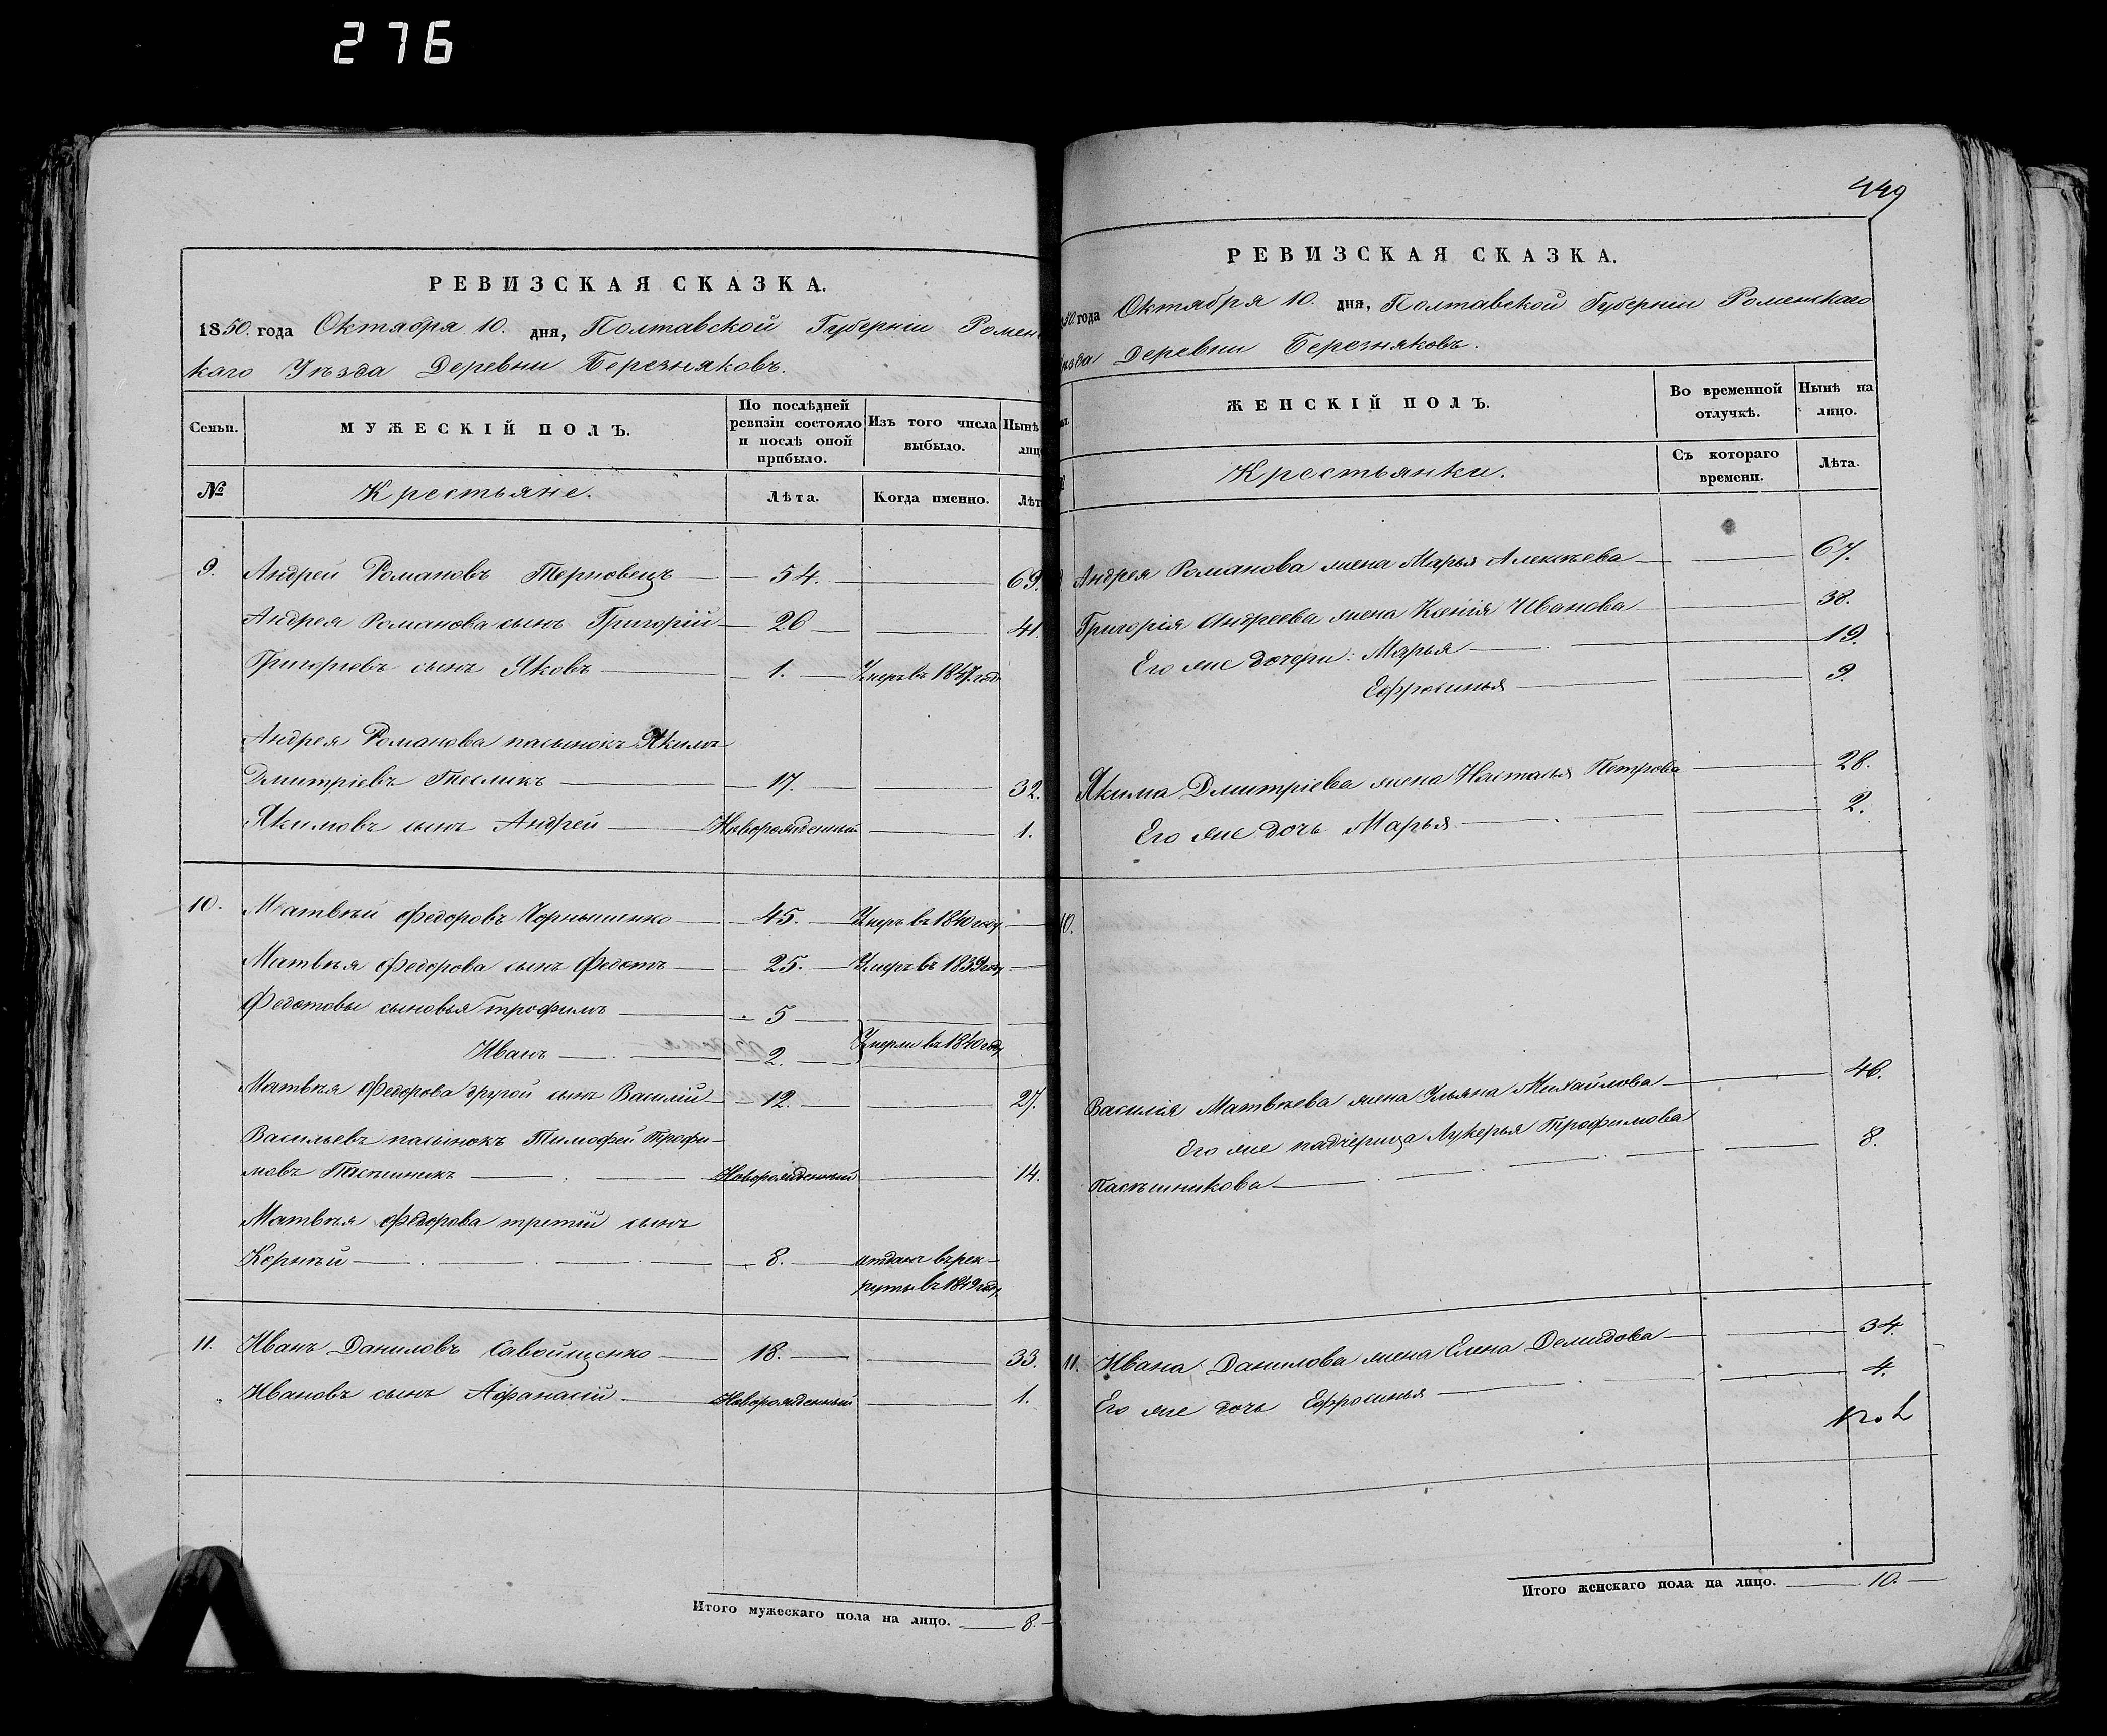 276
РЕВИЗСКАЯ СКАЗКА.
1850. года Октября 10. дня, Полтавской Губерніи Ромен
каго Уѣзда Деревни Березняковъ.
Семьи.
МУЖЕСКІЙ ПОЛЪ.
По послѣдней
ревизіи состояло
и послѣ оной
прибыло.
Изъ того числа
выбыло.
Нынѣ
лиц
№
Крестьяне.
Лѣта.
Когда именно.
Лѣт
9. Андрей Романовъ Терновецъ — 54. — 69.
Андрея Романова сынъ Григорій — 26 — 41.
Григорьевъ сынъ Яковъ — 1. — Умеръ въ 1847. год
Андрея Романова пасынокъ Якимъ
Дмитріевъ Тесликъ — 17. — 32.
Якимовъ сынъ Андрей — Новорожденный — 1.
10. Матвѣй Федоровъ Чорнышенко — 45. — Умеръ въ 1840 году —
Матвѣя Федорова сынъ Федотъ — 25. — Умеръ въ 1839 году —
Федотовы сыновья Трофимъ — 5 —
Иванъ — 2. — Умерли въ 1840 году
Матвѣя Федорова другой сынъ Василій — 12. — 27.
Васильевъ пасынокъ Тимофей Трофи-
мовъ Пасѣшникъ — Новорожденный — 14.
Матвѣя Федорова третій сынъ
Корнѣй — 8. — отданъ въ рек-
руты въ 1849 году
11. Иванъ Даниловъ Савойщенко — 18. — 33.
„ Ивановъ сынъ Афанасій — Новорожденный — 1.
Итого мужескаго пола на лицо. — 8. —
449
РЕВИЗСКАЯ СКАЗКА.
50. года Октября 10. дня, Полтавской Губерніи Роменскаго
ѣзда Деревни Березняковъ.
ЖЕНСКІЙ ПОЛЪ.
Во временной
отлучкѣ.
Нынѣ на
лицо.
Крестьянки.
Съ котораго
времени.
Лѣта.
Андрея Романова жена Марья Алексѣева — 67.
Григорія Андреева жена Ксенія Иванова — 38.
Его же дочери: Марья — 19.
Ефросинья — 9.
Якима Дмитріева жена Наталья Петрова — 28.
Его же дочь Марья — 2.
10.
Василія Матвѣева жена Ульяна Михайлова — 46.
Его же падчерица Лукерья Трофимова
Пасѣшникова — 8.
11. Ивана Данилова жена Елена Демидова — 34.
Его же дочь Ефросинья — 4.
Итого женскаго пола на лицо. — 10. —